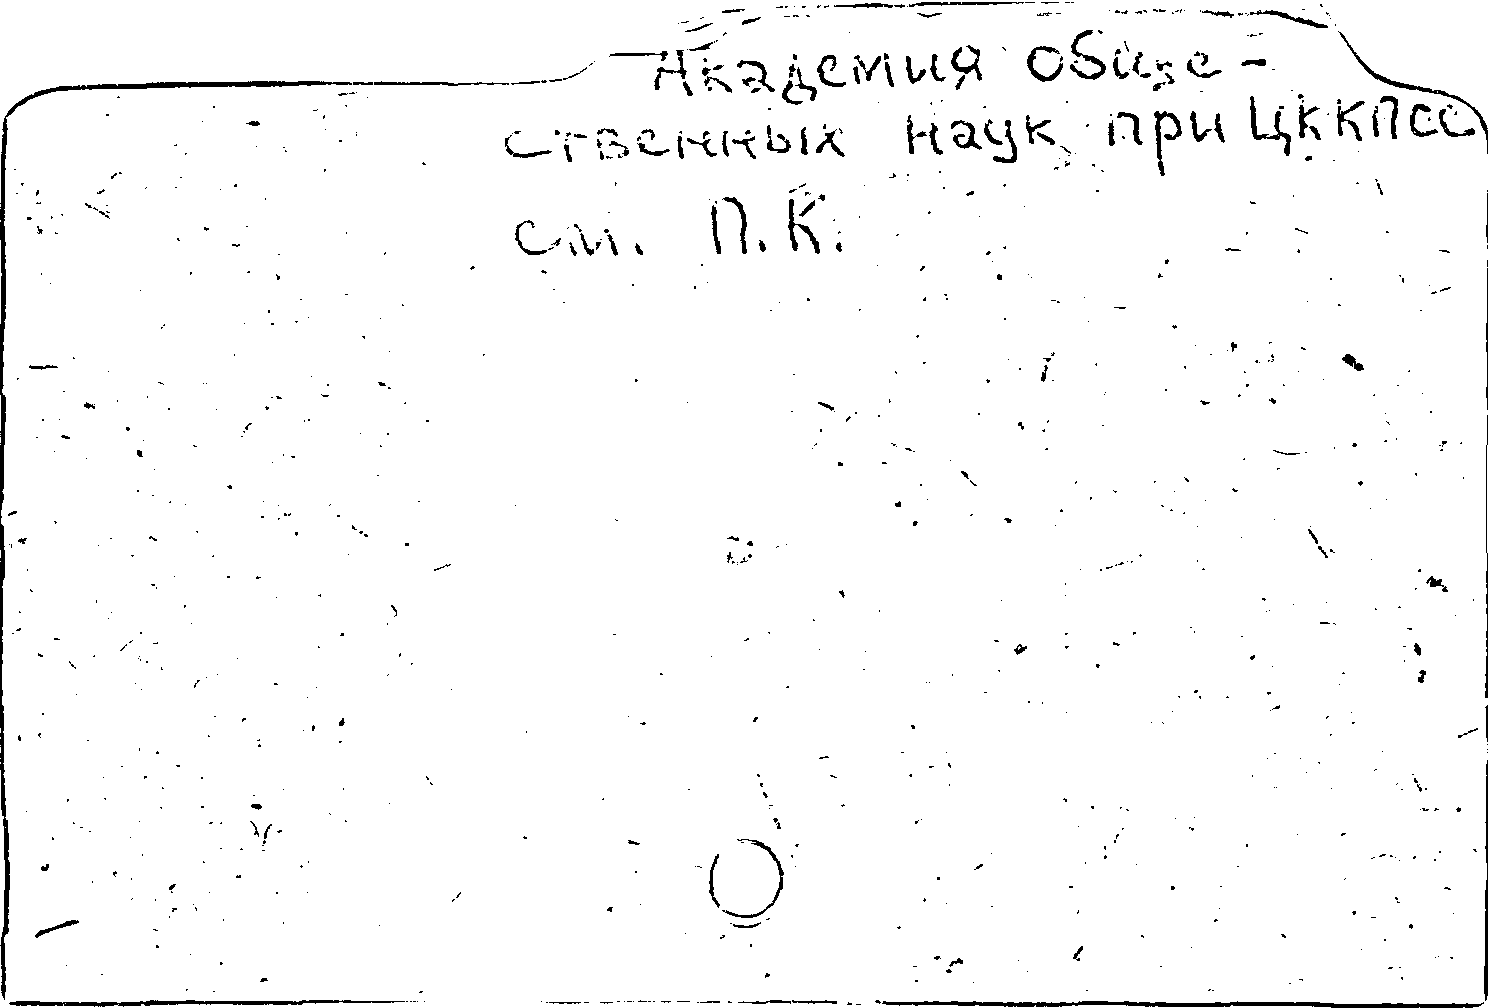 Академия обще-
ственных наук при ЦККПСС
см. П.К.